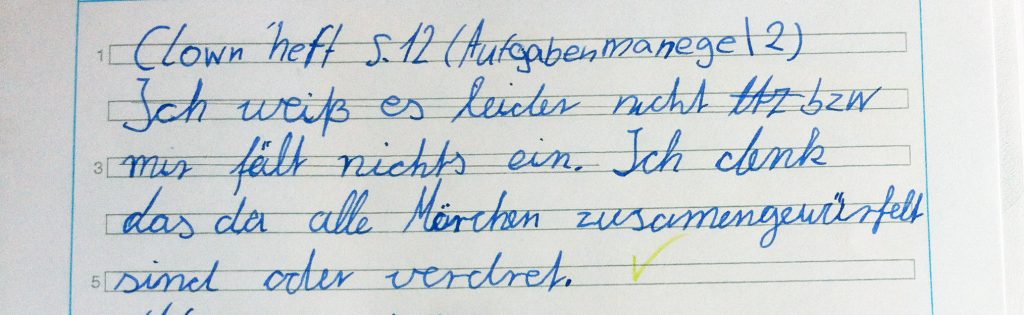 Clown heft S.12 (Aufgabenmanege|2)
Ich weiß es leider nicht bzw
mir fält nichts ein. Ich denk
das da alle Märchen zusamengewürfelt
sind oder verdret.
1
3
5